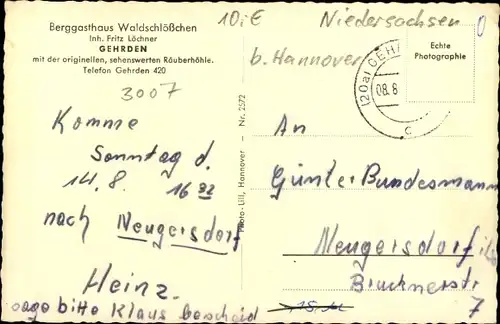 Berggasthaus Waldschlößchen
Inh. Fritz Löchner
GEHRDEN
mit der originellen, sehenswerten Räuberhöhle.
Telefon Gehrden 420
10,-€
Niedersachsen
b. Hannover
3007
Echte
Photographie
(20a) GEH
08.8
c
Photo-Lill, Hannover - Nr. 2572
Komme
Sonntag d.
14. 8. 16 22
nach Neugersdorf
Heinz.
sage bitte Klaus bescheid
An
Günter Bundesmann
Neugersdorf
Brucknerstr
7